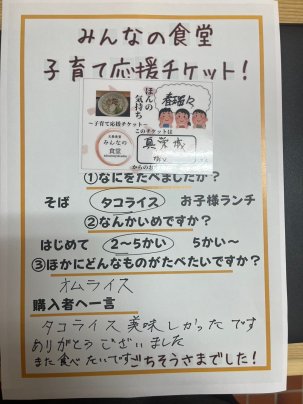 みんなの食堂
子育て応援チケット!
ほんの
気持ち
~子育て応援チケット~
みんなの
食堂
このチケットは
真栄城
からのお
①なにをたべましたか?
そば タコライス お子様ランチ
②なんかいめですか?
はじめて 2~5かい 5かい~
③ほかにどんなものがたべたいですか?
オムライス
購入者へ一言
タコライス美味しかったです
ありがとうございました
また食べたいです ごちそうさまでした!